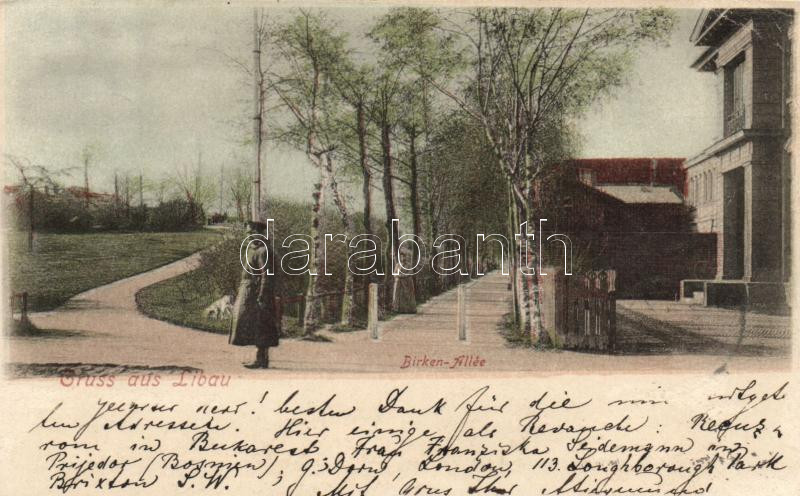 darabanth.com
Birken-Allée
Gruss aus Libau
geehrter Herr! besten Dank für die mir mitgeteil-
ten Adressen. Hier einige als Revanche:
rom in Bukarest Frau Franziska Seidemann in
Prijedor (Bosnien), G. Dorn, London, 113. Loughborough Park
Brixton S. W. Mit